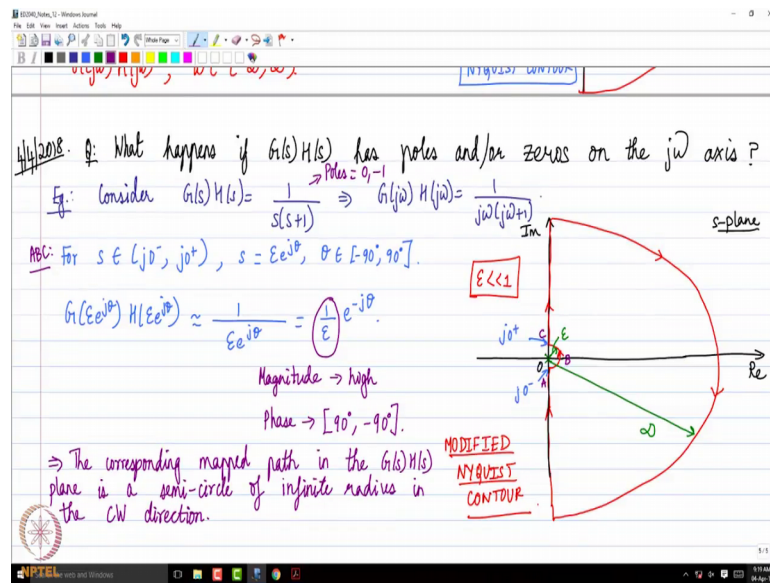 ED2040_Notes_12 - Windows Journal
File Edit View Insert Actions Tools Help
Whole Page
B I
G(jω) H(jω) , ω ∈ (-∞, ∞).
NYQUIST CONTOUR
4/4/2018. Q: What happens if G(s)H(s) has poles and/or zeros on the jω axis ?
Poles = 0, -1
Eg.: Consider G(s)H(s) = 1/(s(s+1)) ⇒ G(jω)H(jω) = 1/(jω(jω+1))
ABC: For s ∈ (j0⁻, j0⁺) , s = εe^{jθ}, θ ∈ [-90°, 90°].
G(εe^{jθ}) H(εe^{jθ}) ≈ 1/(εe^{jθ}) = (1/ε) e^{-jθ}.
Magnitude → high
Phase → [90°, -90°].
⇒ The corresponding mapped path in the G(s)H(s)
plane is a semi-circle of infinite radius in
the CW direction.
Im
s-plane
ε<<1
j0⁺
C
ε
O
B
A
j0⁻
Re
∞
MODIFIED
NYQUIST
CONTOUR.
NPTEL
5/5
web and Windows
9:19 AM